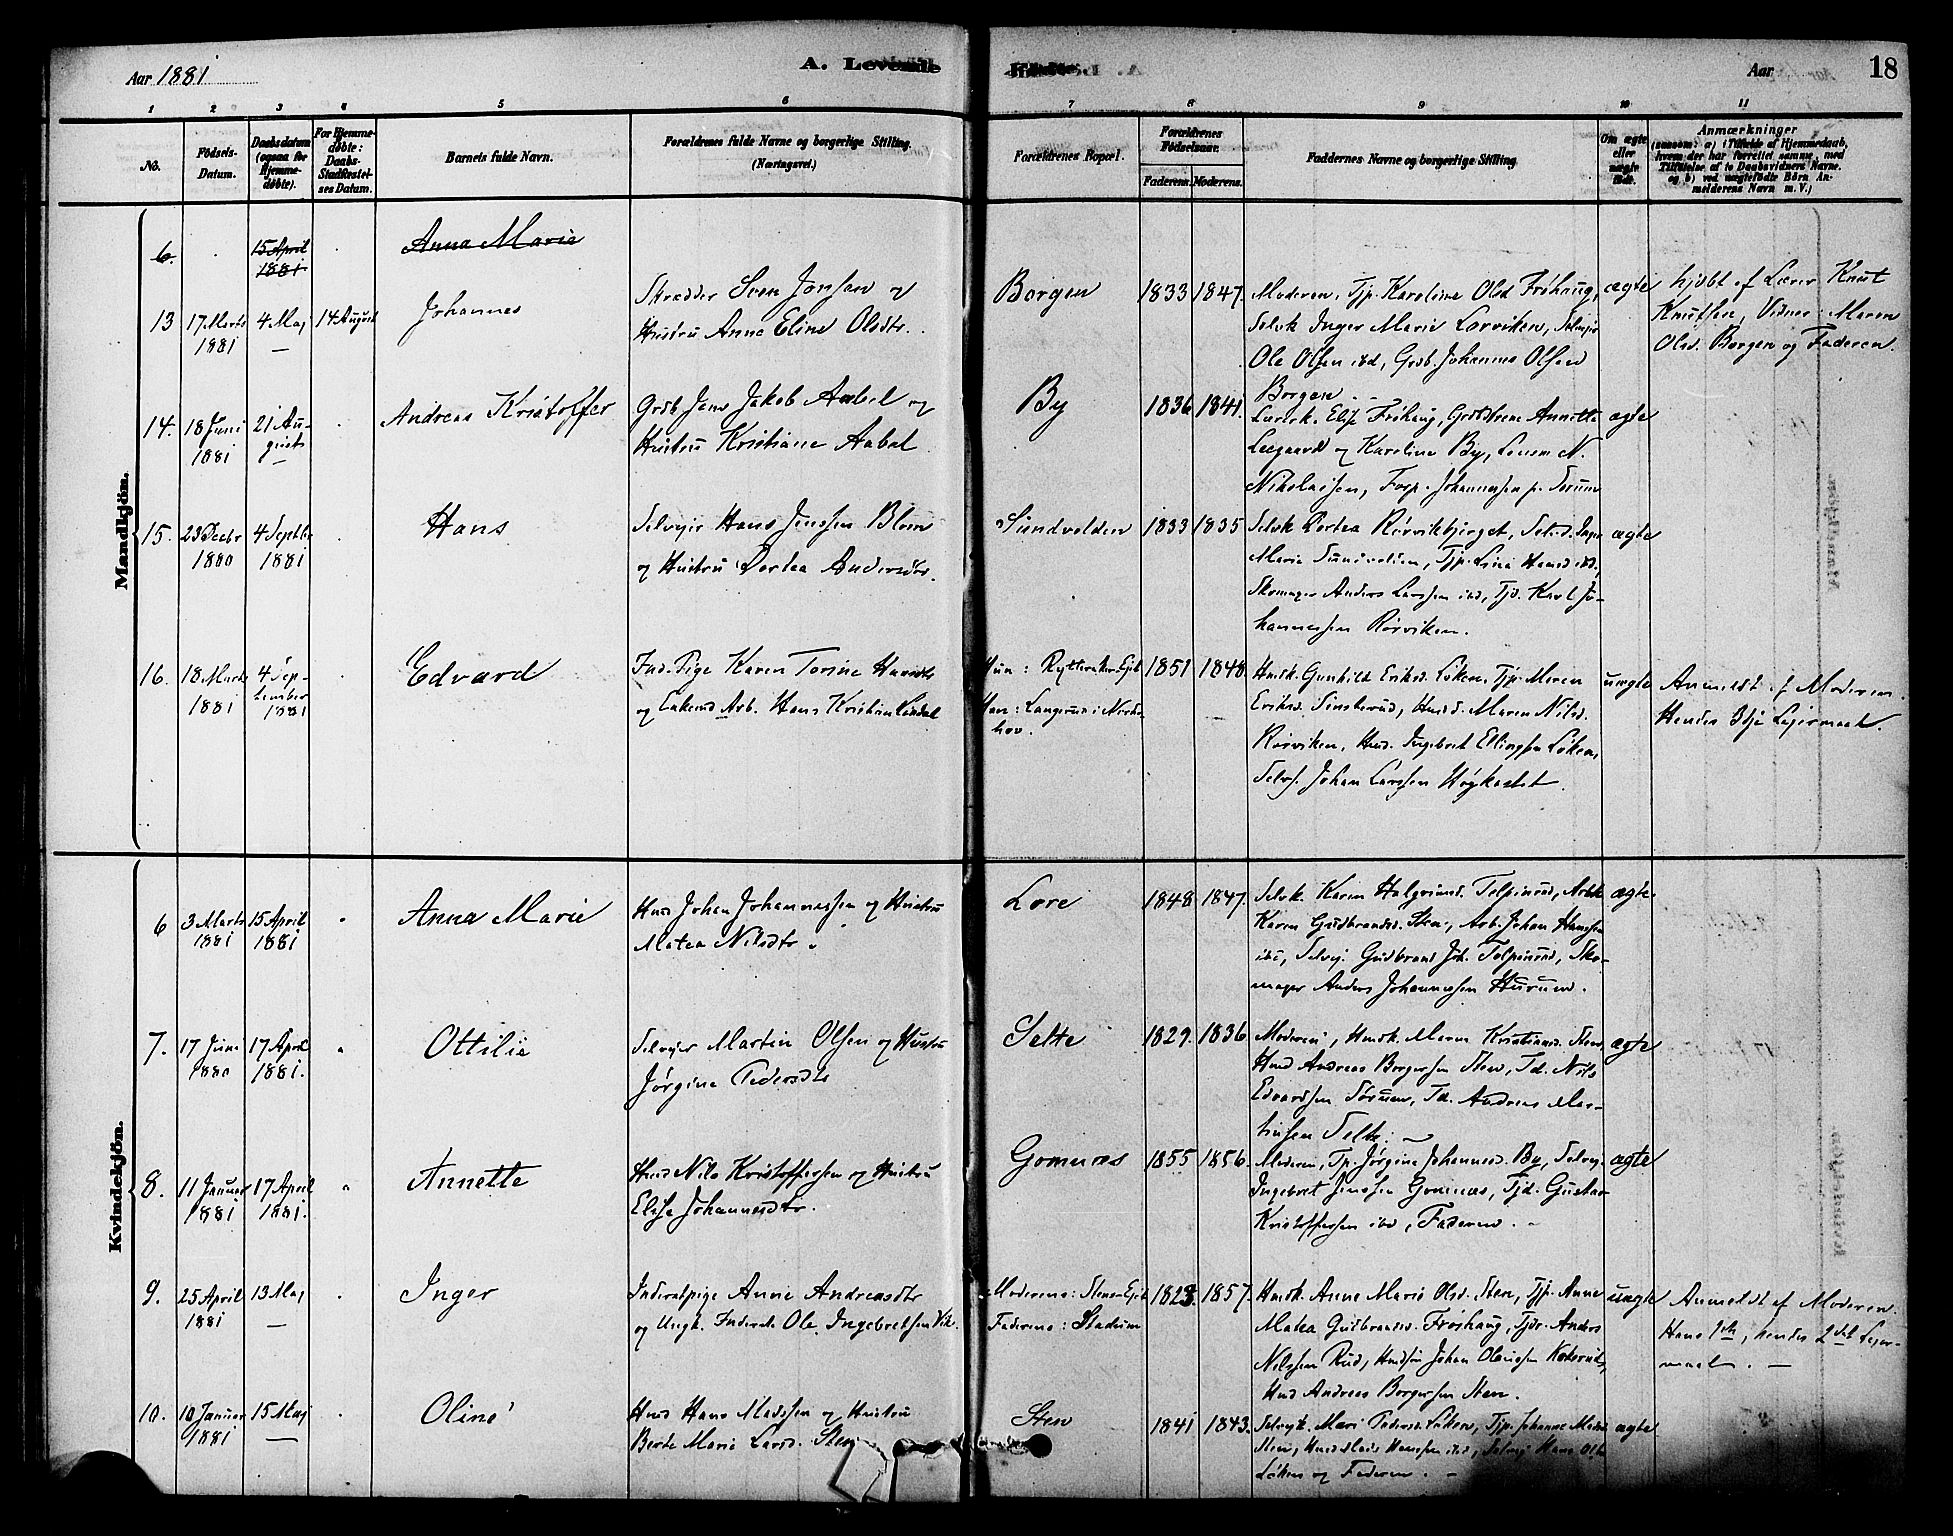 Aar 1881
A. Levende
Födte.
Aar
18
1 2 3 4 5 6 7 8 9 10 11
No.
Födsels-
Datum.
Daabsdatum
(ogsaa for
Hjemme-
døbte).
For Hjemme-
døbte:
Daabs-
Stadfæstel-
ses Datum.
Barnets fulde Navn.
Forældrenes fulde Navne og borgerlige Stilling.
(Næringsvei.)
Forældrenes Bopæl.
Forældrenes
Födselsaar.
Faderens. Moderens.
Faddernes Navne og borgerlige Stilling.
Om ægte
eller
uægte
født.
Anmærkninger
(saasom: a) i Tilfælde af Hjemmedaab,
hvem der har forrettet samme, med
Tilføielse af to Daabsvidners Navne.
og b) ved uægtefødte Börn An-
melderens Navn m. V.)
Mandkjön.
6. 15 April 1881 Anna Marie
13 17 Marts 1881 4 Maj 14 August Johannes
Skrædder Sven Jonsen og
Hustru Anne Eline Olsdtr.
Borgen 1833 1847.
Moderen, Tjp. Karoline Olsd. Fröhaug,
Selvk Inger Marie Lorviken, Selvejer
Ole Olsen ibd, Grdb. Johannes Olsen
Borgen
ægte
hjdbt af Lærer Knut
Knutsen, Vidner: Maren
Olsd. Borgen og Faderen.
14. 18 Juni 1881 21 August Andreas Kristoffer
Grdb Jens Jakob Aabel og
Hustru Kristiane Aabel
By 1836 1841.
Lærerk. Elise Fröhaug, Grdbstrene Annette
Leegaard og Karoline By, Lensm N.
Nikolaisen, Forp. Johannesen p. Sörum
ægte
15. 23 Decbr 1880 4 Septbr 1881 Hans
Selvejer Hans Jenssen Blom
og Hustru Dortea Andersdtr.
Sundvolden 1833 1835
Selvk Dortea Rörvikbjerget, Selvd. Inger
Marie Sundvolden, Tjp. Lina Hansd ibd,
Skomager Anders Larssen ibd, Tjd. Karl Jo-
hannessen Rörviken.
ægte
16. 18 Marts 1881 4 September 1881 Edvard
Ind. Pige Karen Torine Hansdtr
og Enkemd Arb. Hans Kristian Lindal
Hun: Rytteraker Ejd.
Han: Langerud i Norder-
hov.
1851 1848
Husk. Gunhild Eriksd. Löken, Tjp. Maren
Eriksd. Sinsterud, Husd. Maren Nilsd.
Rörviken, Husd. Ingebret Ellingsen Löken,
Selvs. Johan Larssen Högkastet.
uægte
Anmeldt af Moderen.
Hendes 3die Lejermaal.
Kvindekjön.
6 3 Marts 1881 15 April 1881 Anna Marie
Husd Johan Johannessen og Hustru
Matea Nilsdtr.
Lore 1848 1847.
Selvk. Karen Halgrimsd. Tolpinrud, Arbk
Karen Gudbrandsd. Sten, Arb. Johan Hanssen
ibd, Selvej. Gudbrand Joh. Tolpinrud, Sko-
mager Anders Johannessen Hurum.
ægte
7. 17 Juni 1880 17 April 1881. Ottilie
Selvejer Martin Olsen og Hustru
Jörgine Pedersdtr
Selte 1829. 1836
Moderen, Husk. Maren Kristiansd. Sten
Husd Andreas Borgersen Sten, Td. Nils
Edvardsen Sörum, Td. Andreas Mar-
tinsen Selte.
ægte
8. 11 Januar 1881 17 April 1881. Annette
Husd Nils Kristoffersen og Hustru
Elise Johannesdtr.
Gomnes 1855 1856.
Moderen, Tp. Jörgine Johannesd. By, Selvej.
Ingebret Jenssen Gomnæs, Tjd. Gustav
Kristoffersen ibd, Faderen.
ægte
9. 25 April 1881 13 Maj Inger
Inderstpige Anne Andreasdtr
og Ungk. Inderst Ole Ingebretsen Vik.
Moderens: Stens-Ejd.
Faderens: Stadum
1823. 1857.
Husk. Anne Marie Olsd. Sten, Tjp. Anne
Matea Gudbrandsd. Fröshaug, Tjdr. Anders
Nilssen Rud, Husdsön Johan Olavesen
Husd Andreas Borgersen Sten.
uægte
Anmeldt af Moderen.
Hans 1ste, hendes 2det Lejer-
maal.
10. 10 Januar 1881 15 Maj Oline
Husd Hans Madssen og Hustru
Berte Marie Larsd. Sten
Sten 1841 1843.
Selvejk. Mari Pedersd. Löken, Tjp. Johanne Madsd
Sten, Husd Lars Hanssen ibd, Selvej Hans Olsen
Löken og Faderen.
ægte